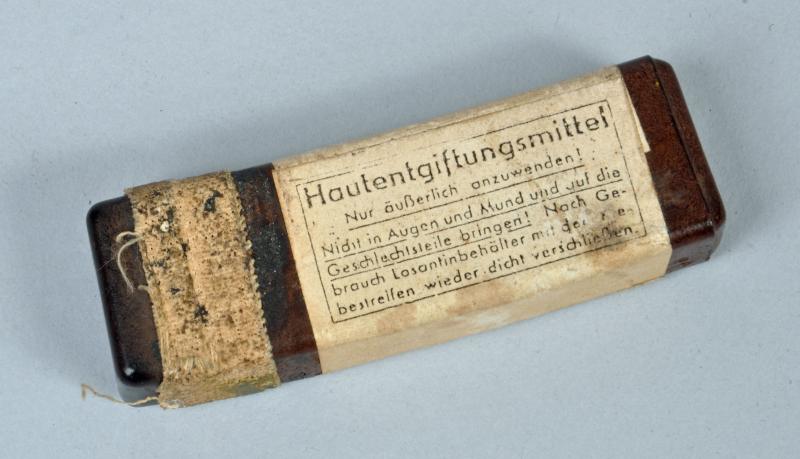 Hautentgiftungsmittel
Nur äußerlich anzuwenden!
Nicht in Augen und Mund und auf die
Geschlechtsteile bringen! Nach Ge-
brauch Losantinbehälter mit dem
bestreifen wieder dicht verschließen.